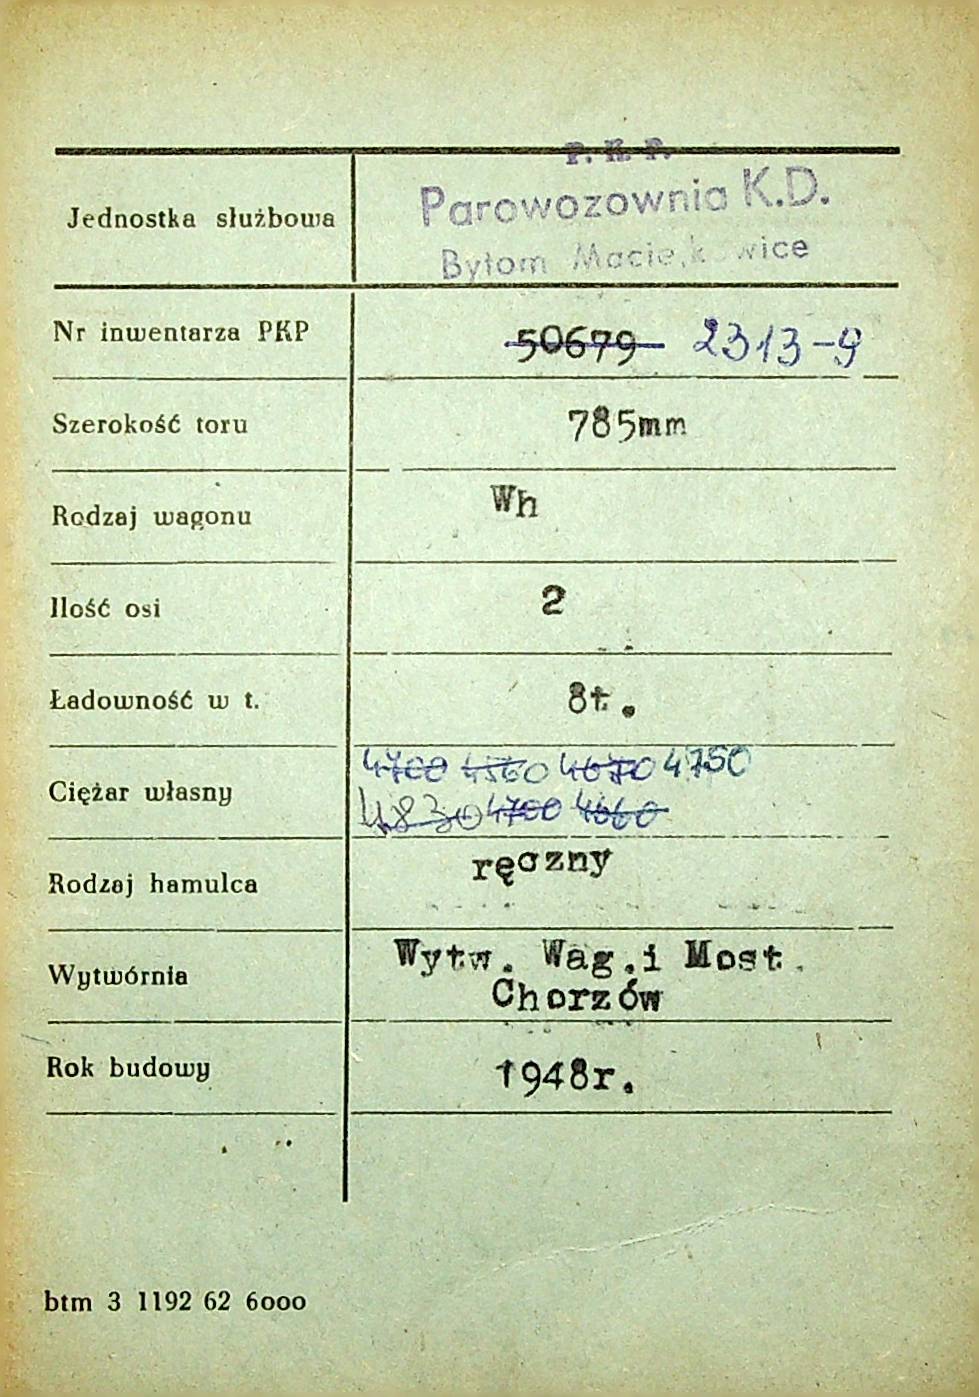 P. K. P.
Jednostka służbowa Parowozownia K.D.
Bytom
Nr inwentarza PKP 50679 2313-9
Szerokość toru 785mm
Rodzaj wagonu Wh
Ilość osi 2
Ładowność w t. 8t.
Ciężar własny 4700 4560 4670 4750
4830 4700 4660
Rodzaj hamulca ręczny
Wytwórnia Wytw. Wag.i Most.
Chorzów
Rok budowy 1948r.
btm 3 1192 62 6000